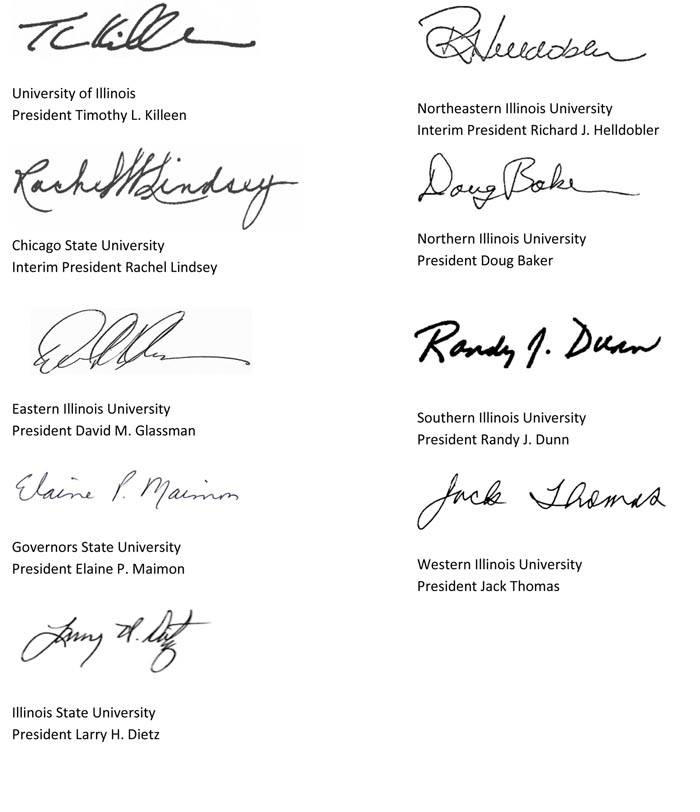 TC Killeen
University of Illinois
President Timothy L. Killeen
Rachel W Lindsey
Chicago State University
Interim President Rachel Lindsey
Eastern Illinois University
President David M. Glassman
Elaine P. Maimon
Governors State University
President Elaine P. Maimon
Larry H. Dietz
Illinois State University
President Larry H. Dietz
R Helldobler
Northeastern Illinois University
Interim President Richard J. Helldobler
Doug Baker
Northern Illinois University
President Doug Baker
Randy J. Dunn
Southern Illinois University
President Randy J. Dunn
Jack Thomas
Western Illinois University
President Jack Thomas